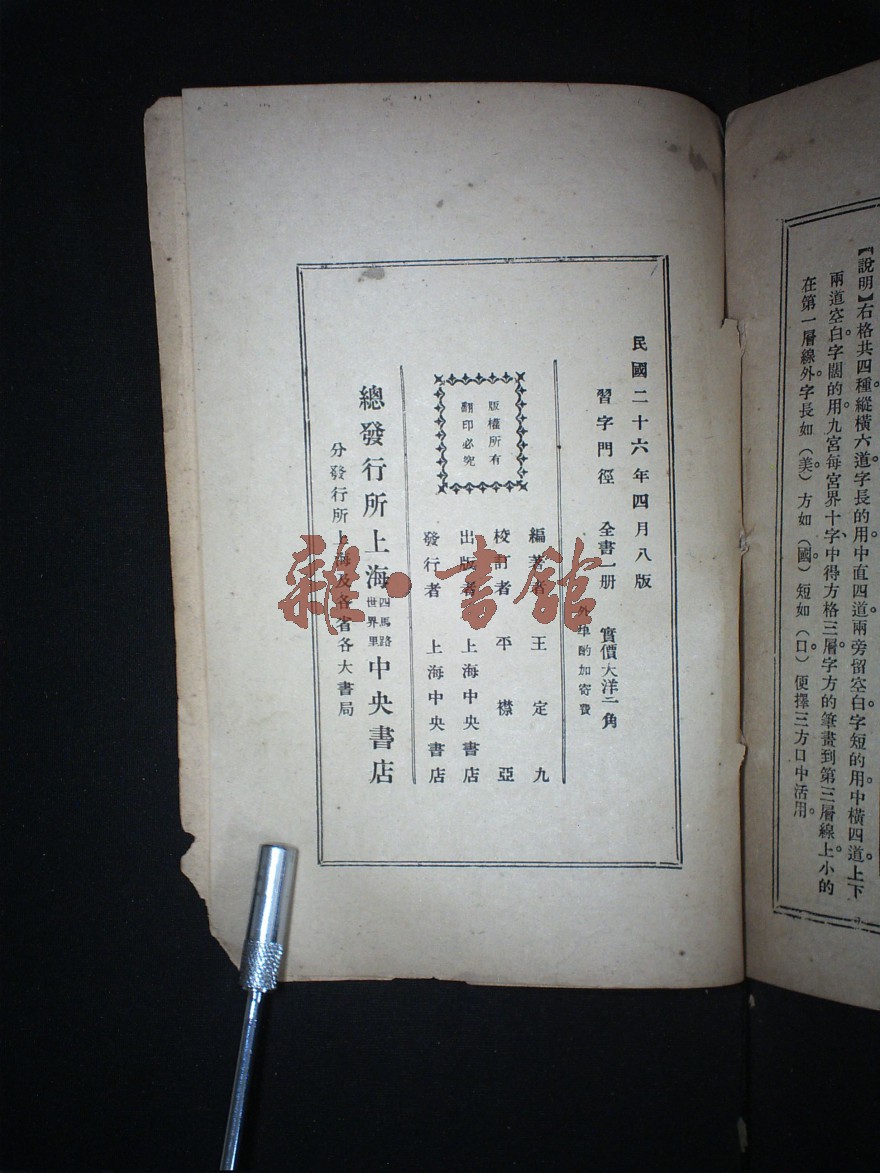 【說明】右格共四種。縱橫六道。字長的用中直四道。兩旁留空白。字短的用中橫四道。上下
兩道空白。字闊的用九宮。每宮界十字。中得方格三層。字方的筆畫到第三層線上。小的
在第一層線外。字長如(美)方如(國)短如(口)便擇三方口中活用。
民國二十六年四月八版
習字門徑 全書一册 實價大洋二角
外埠酌加寄費
編著者 王定九
校訂者 平襟亞
出版者 上海中央書店
發行者 上海中央書店
版權所有
翻印必究
總發行所上海四馬路世界里中央書店
分發行所上海及各省各大書局
雜·書館